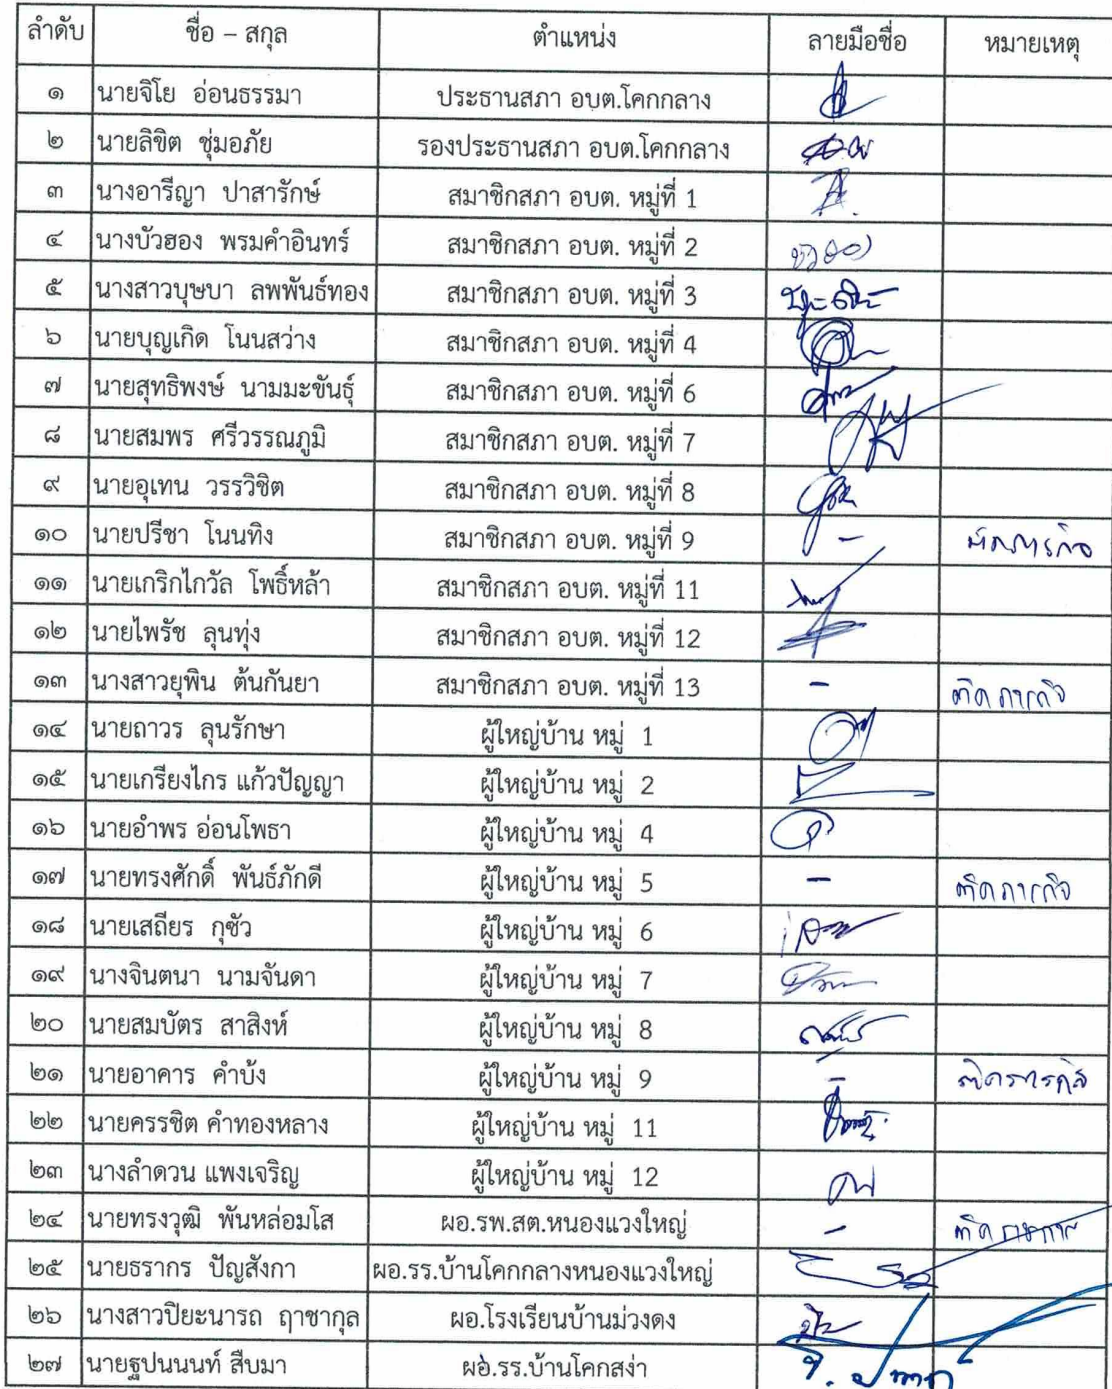 ลำดับ ชื่อ – สกุล ตำแหน่ง ลายมือชื่อ หมายเหตุ
๑ นายจิโย อ่อนธรรมา ประธานสภา อบต.โคกกลาง
๒ นายลิขิต ชุ่มอภัย รองประธานสภา อบต.โคกกลาง
๓ นางอารีญา ปาสารักษ์ สมาชิกสภา อบต. หมู่ที่ 1
๔ นางบัวฮอง พรมคำอินทร์ สมาชิกสภา อบต. หมู่ที่ 2
๕ นางสาวบุษบา ลพพันธ์ทอง สมาชิกสภา อบต. หมู่ที่ 3
๖ นายบุญเกิด โนนสว่าง สมาชิกสภา อบต. หมู่ที่ 4
๗ นายสุทธิพงษ์ นามมะขันธุ์ สมาชิกสภา อบต. หมู่ที่ 6
๘ นายสมพร ศรีวรรณภูมิ สมาชิกสภา อบต. หมู่ที่ 7
๙ นายอุเทน วรรวิชิต สมาชิกสภา อบต. หมู่ที่ 8
๑๐ นายปรีชา โนนทิง สมาชิกสภา อบต. หมู่ที่ 9 - ติดภารกิจ
๑๑ นายเกริกไกวัล โพธิ์หล้า สมาชิกสภา อบต. หมู่ที่ 11
๑๒ นายไพรัช ลุนทุ่ง สมาชิกสภา อบต. หมู่ที่ 12
๑๓ นางสาวยุพิน ต้นกันยา สมาชิกสภา อบต. หมู่ที่ 13 - ติดภารกิจ
๑๔ นายถาวร ลุนรักษา ผู้ใหญ่บ้าน หมู่ 1
๑๕ นายเกรียงไกร แก้วปัญญา ผู้ใหญ่บ้าน หมู่ 2
๑๖ นายอำพร อ่อนโพธา ผู้ใหญ่บ้าน หมู่ 4
๑๗ นายทรงศักดิ์ พันธ์ภักดี ผู้ใหญ่บ้าน หมู่ 5 - ติดภารกิจ
๑๘ นายเสถียร กุซัว ผู้ใหญ่บ้าน หมู่ 6
๑๙ นางจินตนา นามจันดา ผู้ใหญ่บ้าน หมู่ 7
๒๐ นายสมบัตร สาสิงห์ ผู้ใหญ่บ้าน หมู่ 8
๒๑ นายอาคาร คำบ้ง ผู้ใหญ่บ้าน หมู่ 9 - ติดภารกิจ
๒๒ นายครรชิต คำทองหลาง ผู้ใหญ่บ้าน หมู่ 11
๒๓ นางลำดวน แพงเจริญ ผู้ใหญ่บ้าน หมู่ 12
๒๔ นายทรงวุฒิ พันหล่อมโส ผอ.รพ.สต.หนองแวงใหญ่ -
๒๕ นายธรากร ปัญสังกา ผอ.รร.บ้านโคกกลางหนองแวงใหญ่
๒๖ นางสาวปิยะนารถ ฤาชากุล ผอ.โรงเรียนบ้านม่วงดง
๒๗ นายฐปนนนท์ สืบมา ผอ.รร.บ้านโคกสง่า